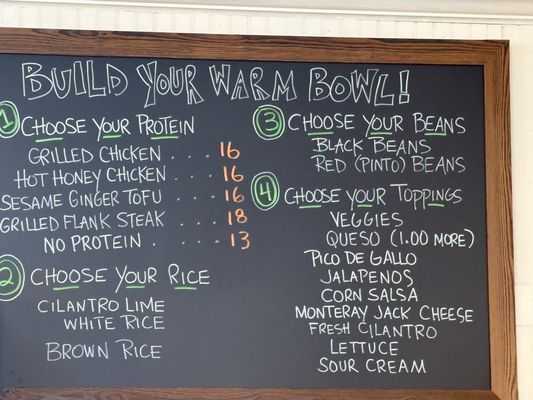 BUILD YOUR WARM BOWL!
1 CHOOSE YOUR PROTEIN
GRILLED CHICKEN .... 16
HOT HONEY CHICKEN .... 16
SESAME GINGER TOFU .... 16
GRILLED FLANK STEAK .... 18
NO PROTEIN .... 13
2 CHOOSE YOUR RICE
CILANTRO LIME
WHITE RICE
BROWN RICE
3 CHOOSE YOUR BEANS
BLACK BEANS
RED (PINTO) BEANS
4 CHOOSE YOUR TOPPINGS
VEGGIES
QUESO (1.00 MORE)
PICO DE GALLO
JALAPENOS
CORN SALSA
MONTERAY JACK CHEESE
FRESH CILANTRO
LETTUCE
SOUR CREAM